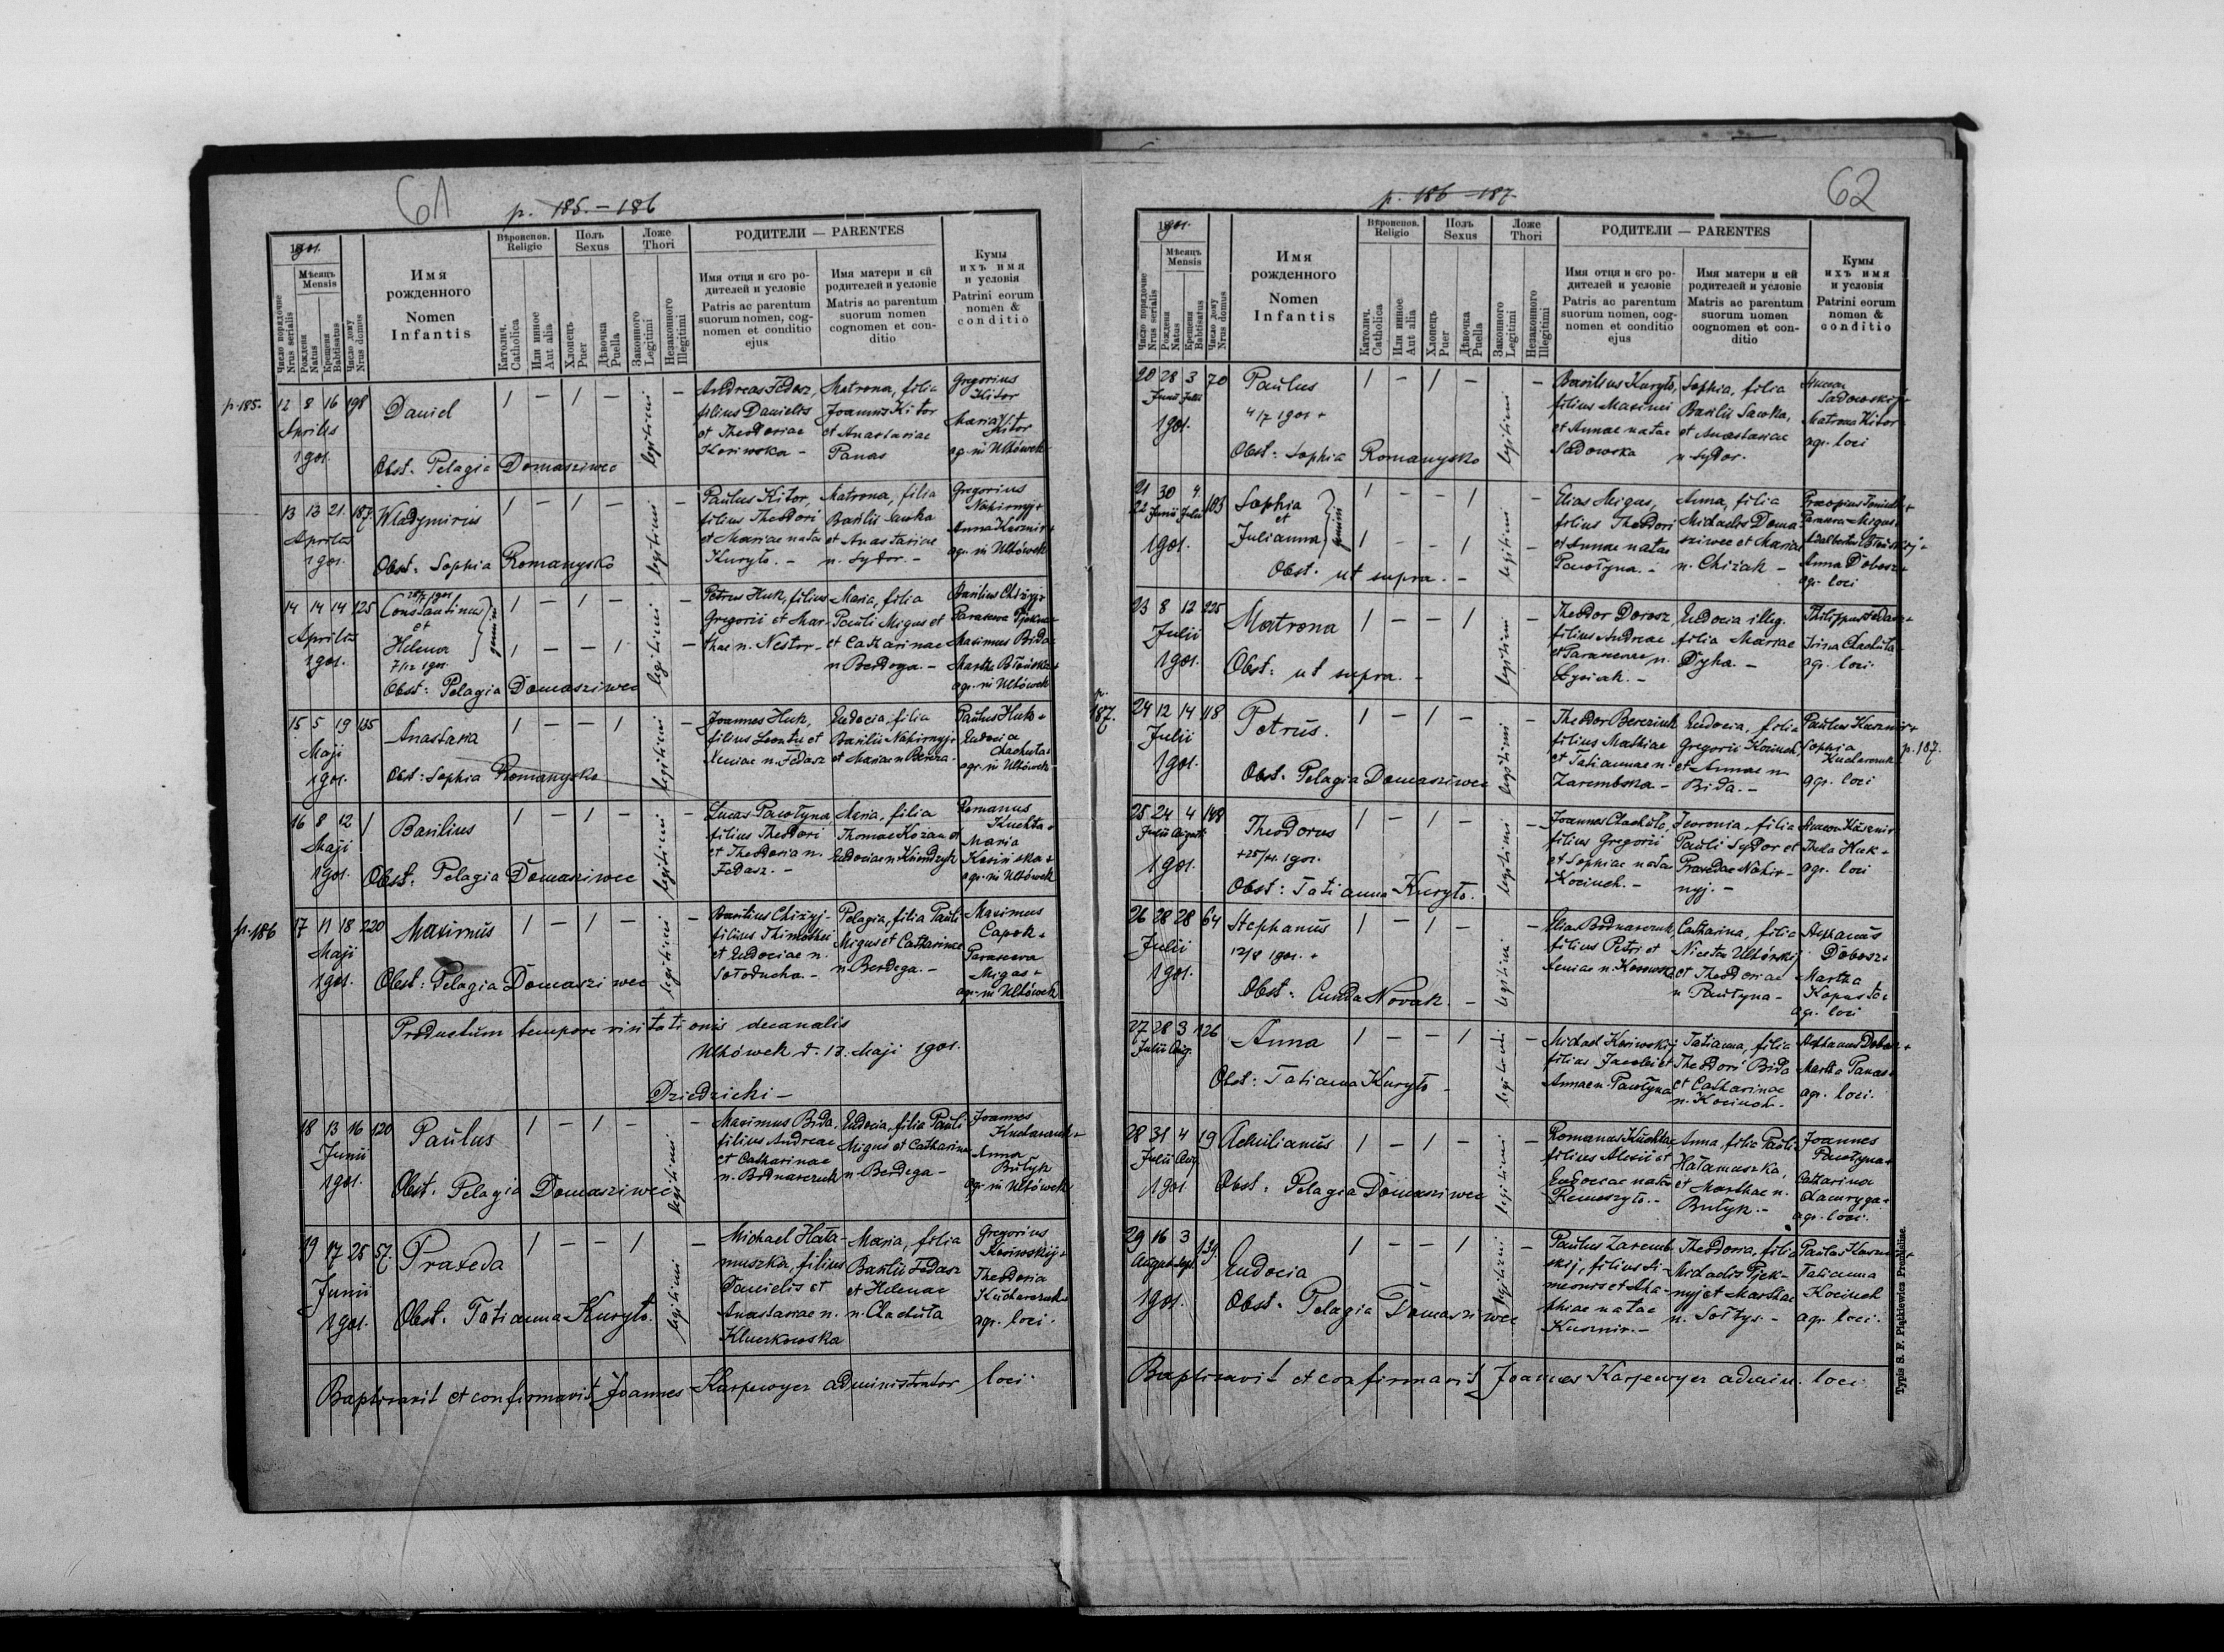 61
p. 185. - 186
1901.
Мѣсяцъ
Mensis
Число порядочне
Nrus serialis
Рожденя
Natus
Крещеня
Babtisatus
Число дому
Nrus domus
Имя
рожденного
Nomen
Infantis
Вѣроиспов.
Religio
Католич.
Catholica
Или инное
Aut alia
Полъ
Sexus
Хлопецъ
Puer
Дѣвочка
Puella
Ложе
Thori
Законного
Legitimi
Незаконного
Illegitimi
РОДИТЕЛИ — PARENTES
Имя отця и єго ро-
дителей и условіє
Patris ac parentum
suorum nomen, cog-
nomen et conditio
ejus
Имя матери и єй
родителей и условіє
Matris ac parentum
suorum nomen
cognomen et con-
ditio
Кумы
ихъ имя
и условія
Patrini eorum
nomen &
conditio
p. 185.
12 8 16 198
Aprilis
1901.
Daniel
1 - 1 -
legitimi
-
Obst. Pelagia Domasziwec
Andreas Fedasz,
filius Danielis
et Theodosiae
Kosiwska -
Matrona, filia
Joannis Kitor
et Anastasiae
Panas
Gregorius
Kitor
Maria
Kitor
ag. in Uhówek
13 13 21. 187
Aprilis
1901.
Wladymirus
1 - 1 -
legitimi
-
Obst. Sophia Romanysko
Paulus Kitor,
filius Theodori
et Mariae natae
Kuryło. -
Matrona, filia
Basilii Sawka
et Anastasiae
n. Sydor. -
Gregorius
Nahirnyj +
Anna Kusznir +
agr. in Uhówek
14 14 14 125
Aprilis
1901.
Constantinus
et
Helena
7/12 1901.
gemini
1 - 1 -
1 - - 1
legitimi
-
Obst: Pelagia Domasziwec
Petrus Huk, filius
Gregorii et Mar-
thae n. Nestor -
Maria, filia
Pauli Migus et
et Catharinae
n Berdega. -
Basilius Chizyj +
Maximus Bida
agr. in Uhówek
15 5 19 135
Maji
1901.
Anastasia
1 - - 1
legitimi
-
Obst: Sophia Romanysko
Joannes Huk,
filius Leontii et
Xeniae n. Fedasz
Eudocia, filia
Basilii Nahirnyj
et Mariae n Bereza -
Paulus Huk +
Eudocia
Chachuta +
agr. in Uhówek
16 8 12 1
Maji
1901.
Basilius
1 - 1 -
legitimi
-
Obst. Pelagia Domasziwec
Lucas Pawłyna,
filius Theodori
et Theodosia n.
Fedasz. -
Maria, filia
Thomae Kozan et
Romanus
Kuchta +
Maria
agr. in Uhówek
p. 186
17 11 18 220
Maji
1901.
Maximus
1 - 1 -
legitimi
-
Obst: Pelagia Domasziwec
Basilius Chizyj -
filius Thimothei
et Eudociae n.
Sołoducha. -
Pelagia, filia Pauli
Migus et Catharinae
n. Berdega. -
Maximus
Capok +
Parascewa
Migas +
agr. in Uhówek
Productum tempore visitationis decanalis
Uhówek d. 13. Maji 1901.
Dziedzicki -
18 13 16 120
Junii
1901.
Paulus
1 - 1 -
legitimi
-
Obst. Pelagia Domasziwec
Maximus Bida,
filius Andreae
et Catharinae
n. Bodnarczuk
Eudocia, filia Pauli
Migus et Catharinae
n. Berdega -
Joannes
Kucharczuk +
Anna
Bułyk
agr. in Uhówek
19 17 25 57.
Junii
1901.
Praxeda
1 - - 1
legitimi
-
Obst. Tatianna Kuryło.
Michael Hała-
muszka, filius
Danielis et
Anastasiae n.
Kluczkowska
Maria, filia
Basilii Fedasz
et Helenae
n. Chachuta
Gregorius
Kosiwskij +
Theodosia
Kucharczuk +
agr. loci.
Baptizavit et confirmavit Joannes Karpewycz administrator loci.
62
p. 186 - 187
1901.
Мѣсяцъ
Mensis
Число порядочне
Nrus serialis
Рожденя
Natus
Крещеня
Babtisatus
Число дому
Nrus domus
Имя
рожденного
Nomen
Infantis
Вѣроиспов.
Religio
Католич.
Catholica
Или инное
Aut alia
Полъ
Sexus
Хлопецъ
Puer
Дѣвочка
Puella
Ложе
Thori
Законного
Legitimi
Незаконного
Illegitimi
РОДИТЕЛИ — PARENTES
Имя отця и єго ро-
дителей и условіє
Patris ac parentum
suorum nomen, cog-
nomen et conditio
ejus
Имя матери и єй
родителей и условіє
Matris ac parentum
suorum nomen
cognomen et con-
ditio
Кумы
ихъ имя
и условія
Patrini eorum
nomen &
conditio
20 28 3 70
Junii Julii
1901.
Paulus
4/7 1901 +
1 - 1 -
legitimi
-
Obst: Sophia Romanysko
Basilius Kuryło,
filius Maximi
et Annae natae
Sadowska
Sophia, filia
Basilii Sawka,
et Anastasiae
n Sydor.
Simeon
Sadowskij +
Matrona Kitor
agr. loci
21 30 4. 103
22 Junii Julii
1901.
Sophia
et
Julianna
gemini
1 - - 1
1 - - 1
legitimi
-
Obst. ut supra. -
Elias Migus,
filius Theodori
et Annae natae
Pawłyna. -
Anna, filia
Michaelis Doma
sziwec et Mariae
n. Chizak -
Parascewa Migus
Anna Dobosz +
agr. loci
23 8 12 225
Julii
1901.
Matrona
1 - - 1
legitimi
-
Obst: ut supra. -
Theodor Dorosz,
filius Andreae
et Parascewae n.
Łysiak. -
Eudocia illeg.
filia Mariae
Dyha -
Philippus Fedasz +
Irina Chachuta
agr. loci.
p.
187.
24 12 14 118
Julii
1901.
Petrus.
1 - 1 -
legitimi
-
Obst. Pelagia Domasziwec
Theodor Bereziuk
filius Mathiae
et Tatiannae n.
Zarembska -
Eudocia, filia
Gregorii Kociuch,
et Annae n.
Bida. -
Paulus Kusznir +
Sophia
Kucharczuk
agr. loci
p. 187.
25 24 4 148
Julii Augusti
1901.
Theodorus
1 - 1 -
legitimi
-
Obst: Tatianna Kuryło.
Joannes Chachuta,
filius Gregorii
et Sophiae natae
Kociuch. -
Jeoronia, filia
Pauli Sydor et
Praxedae Nahir-
nyj. -
Simeon Kusznir
Thecla Huk +
agr. loci
26 28 28 64
Julii
1901.
Stephanus
12/8 1901. +
1 - 1 -
legitimi
-
Obst: Cunda Novak. -
Elias Bodnarczuk,
filius Petri et
Xeniae n. Kosiwska
Catharina, filia
Nicetae Uhórskij
et Theodosiae
n Pawłyna -
Stephanus
Dobosz +
Martha
Kapusta
agr. loci
27 28 3 126
Julii Aug.
1901.
Anna
1 - - 1
legitimi
-
Obst: Tatianna Kuryło -
Michael Kosiwskij
filius Jacobi et
Annae n. Pawłyna
Tatianna, filia
Theodori Bida
et Catharinae
n. Kociuch -
Stephanus Dobosz +
Martha Panas +
agr. loci.
28 31 4 19
Julii Aug
1901
Aemilianus
1 - 1 -
legitimi
-
Obst. Pelagia Domasziwec
Romanus Kuchta
filius Alexii et
Eudociae natae
Remeszyło. -
Anna, filia Pauli
Hałamuszka,
et Marthae n.
Bułyk. -
Joannes
Pawłyna +
Catharina
Chamryga +
agr. loci.
29 16 3 139.
August. Sept.
1901.
Eudocia
1 - - 1
legitimi
-
Obst. Pelagia Domasziwec
Paulus Zaremb
skij, filius Si-
meonis et Aga-
thiae natae
Kusznir. -
Theodosia, filia
Michaelis Pjek-
nyj et Marthae
n. Sołtys. -
Paulus Kusznir +
Tatianna
Kociuch
agr loci.
Baptizavit et confirmavit Joannes Karpewycz admin. loci.
Typis S. F. Piątkiewicz Premisliae.